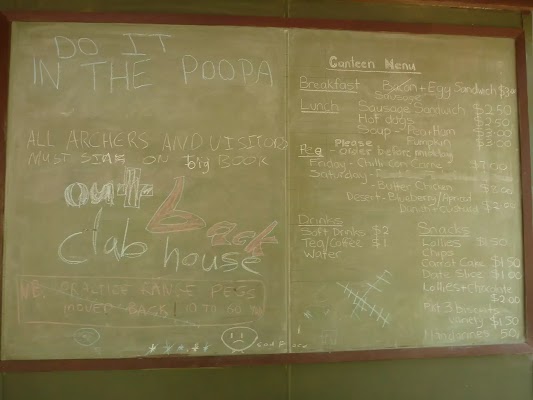 DO IT
IN THE POOPA
ALL ARCHERS AND VISITORS
MUST SINE ON big BOOK
out back
club house
NB. PRACTICE RANGE PEGS
MOVED BACK 10 TO 60
Canteen Menu
Breakfast Bacon + Egg Sandwich $3.00
Sausage
Lunch Sausage Sandwich $2.50
Hot dogs $2.50
Soup - Pea + Ham $3.00
Pumpkin $3.00
Please
- order before midday
Friday - Chilli Con Carne $7.00
Saturday -
- Butter Chicken
Desert - Blueberry/Apricot
Custard $2.00
Drinks
Soft Drinks $2
Tea/Coffee $1
Water
Snacks
Lollies $1.50
Chups
Carrot Cake $1.50
Date Slice $1.00
Lollies + Chocolate
$2.00
Pkt 3 biscuits
variety $1.50
Mandarines 50